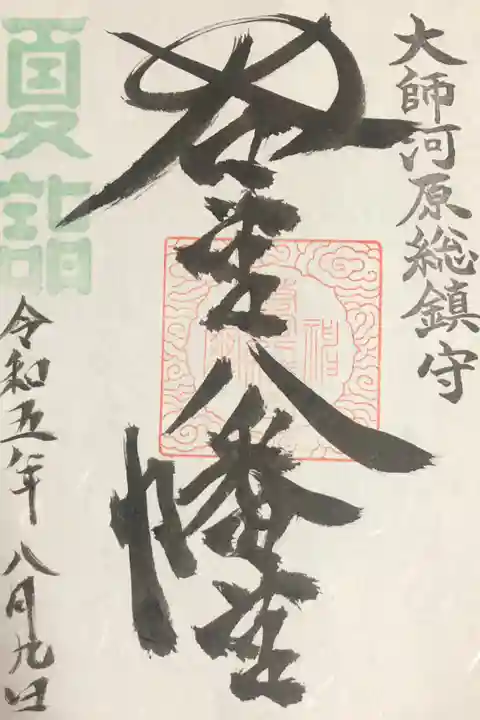 大師河原総鎮守
若宮八幡宮
夏詣
令和五年 八月九日